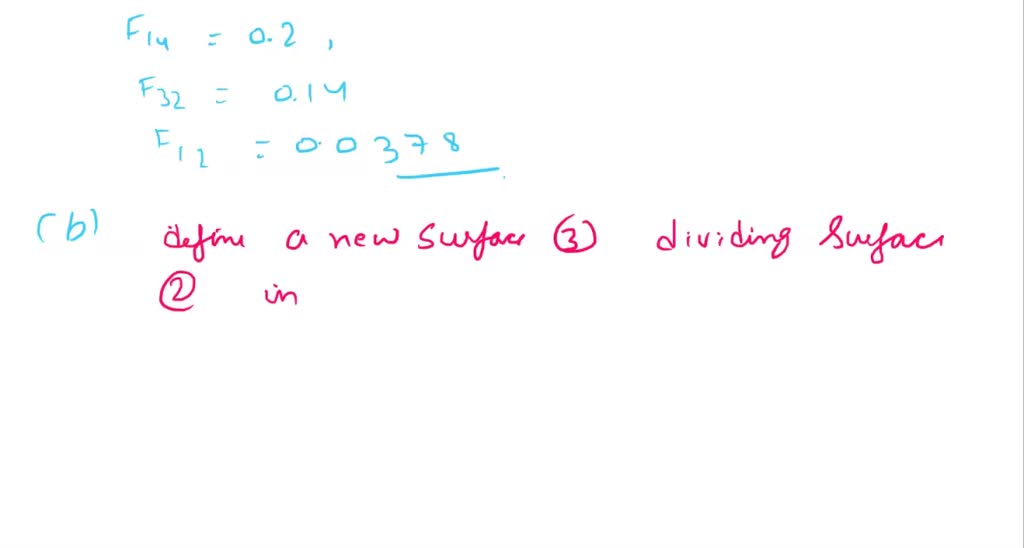 F14 = 0.2 ,
F32 = 0.14
F12 = 0.0378
(b) define a new surface ③ dividing surface
② in